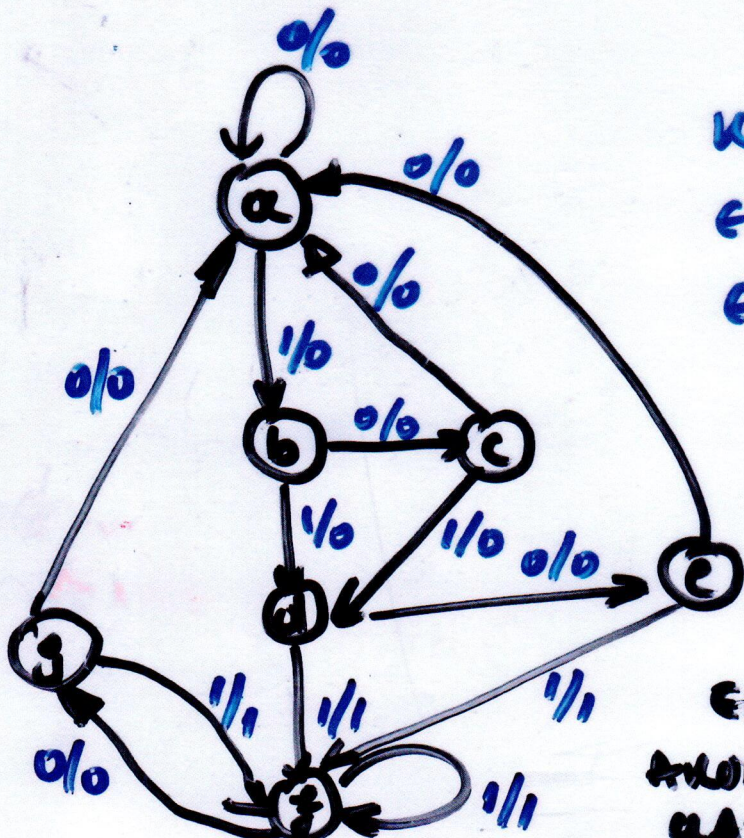 0/0
0/0
a
0/0
0/0
1/0
b
0/0
c
1/0
1/0
0/0
e
d
g
1/1
1/1
1/1
0/0
f
1/1